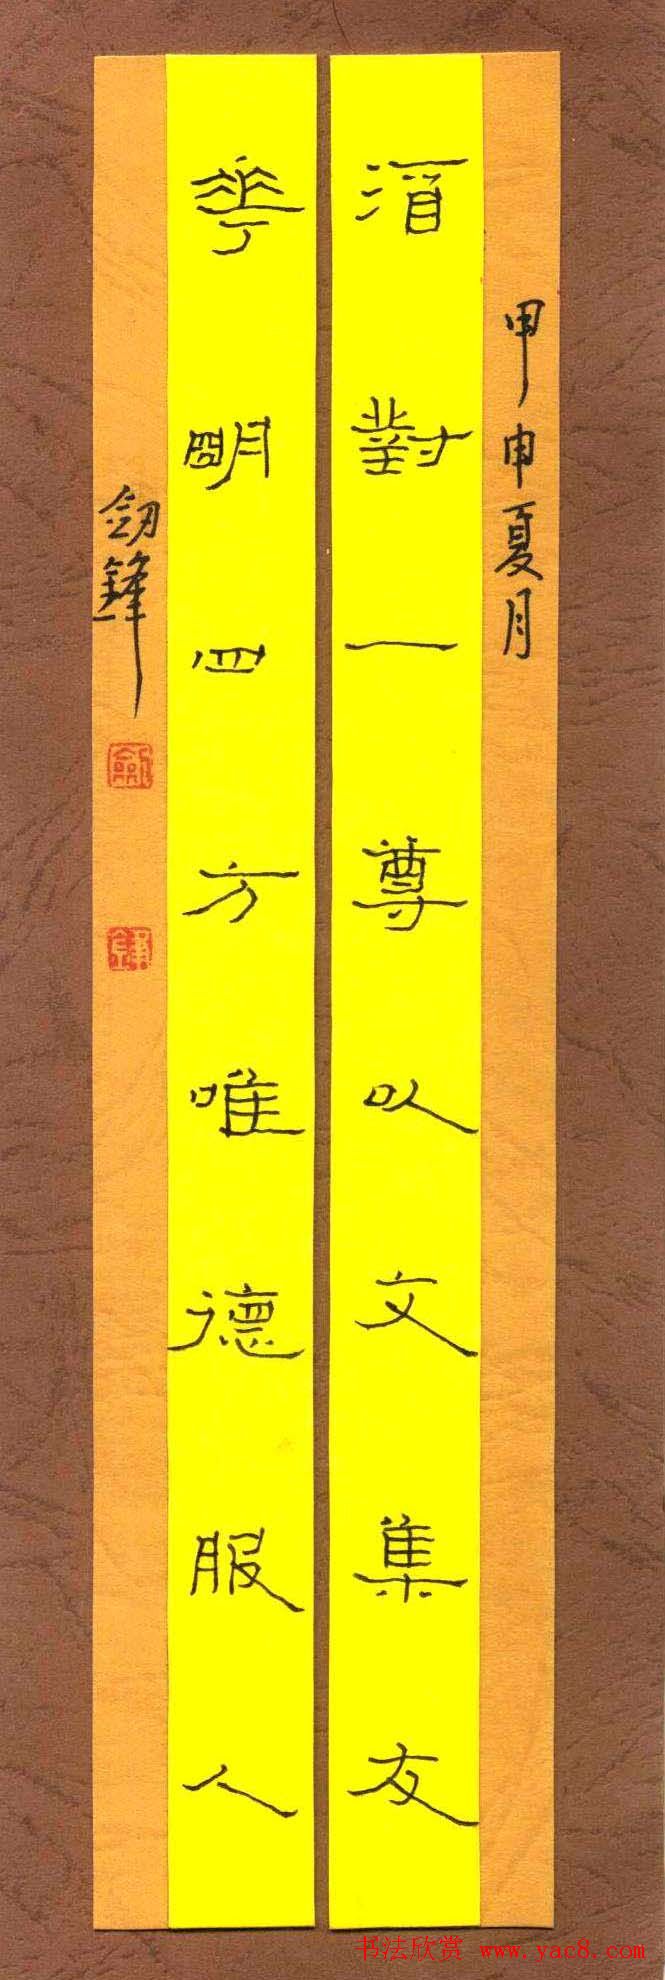 甲申夏月
酒對一尊以文集友
華明四方唯德服人
釼鋒
劍
鋒
书法欣赏 www.yac8.com